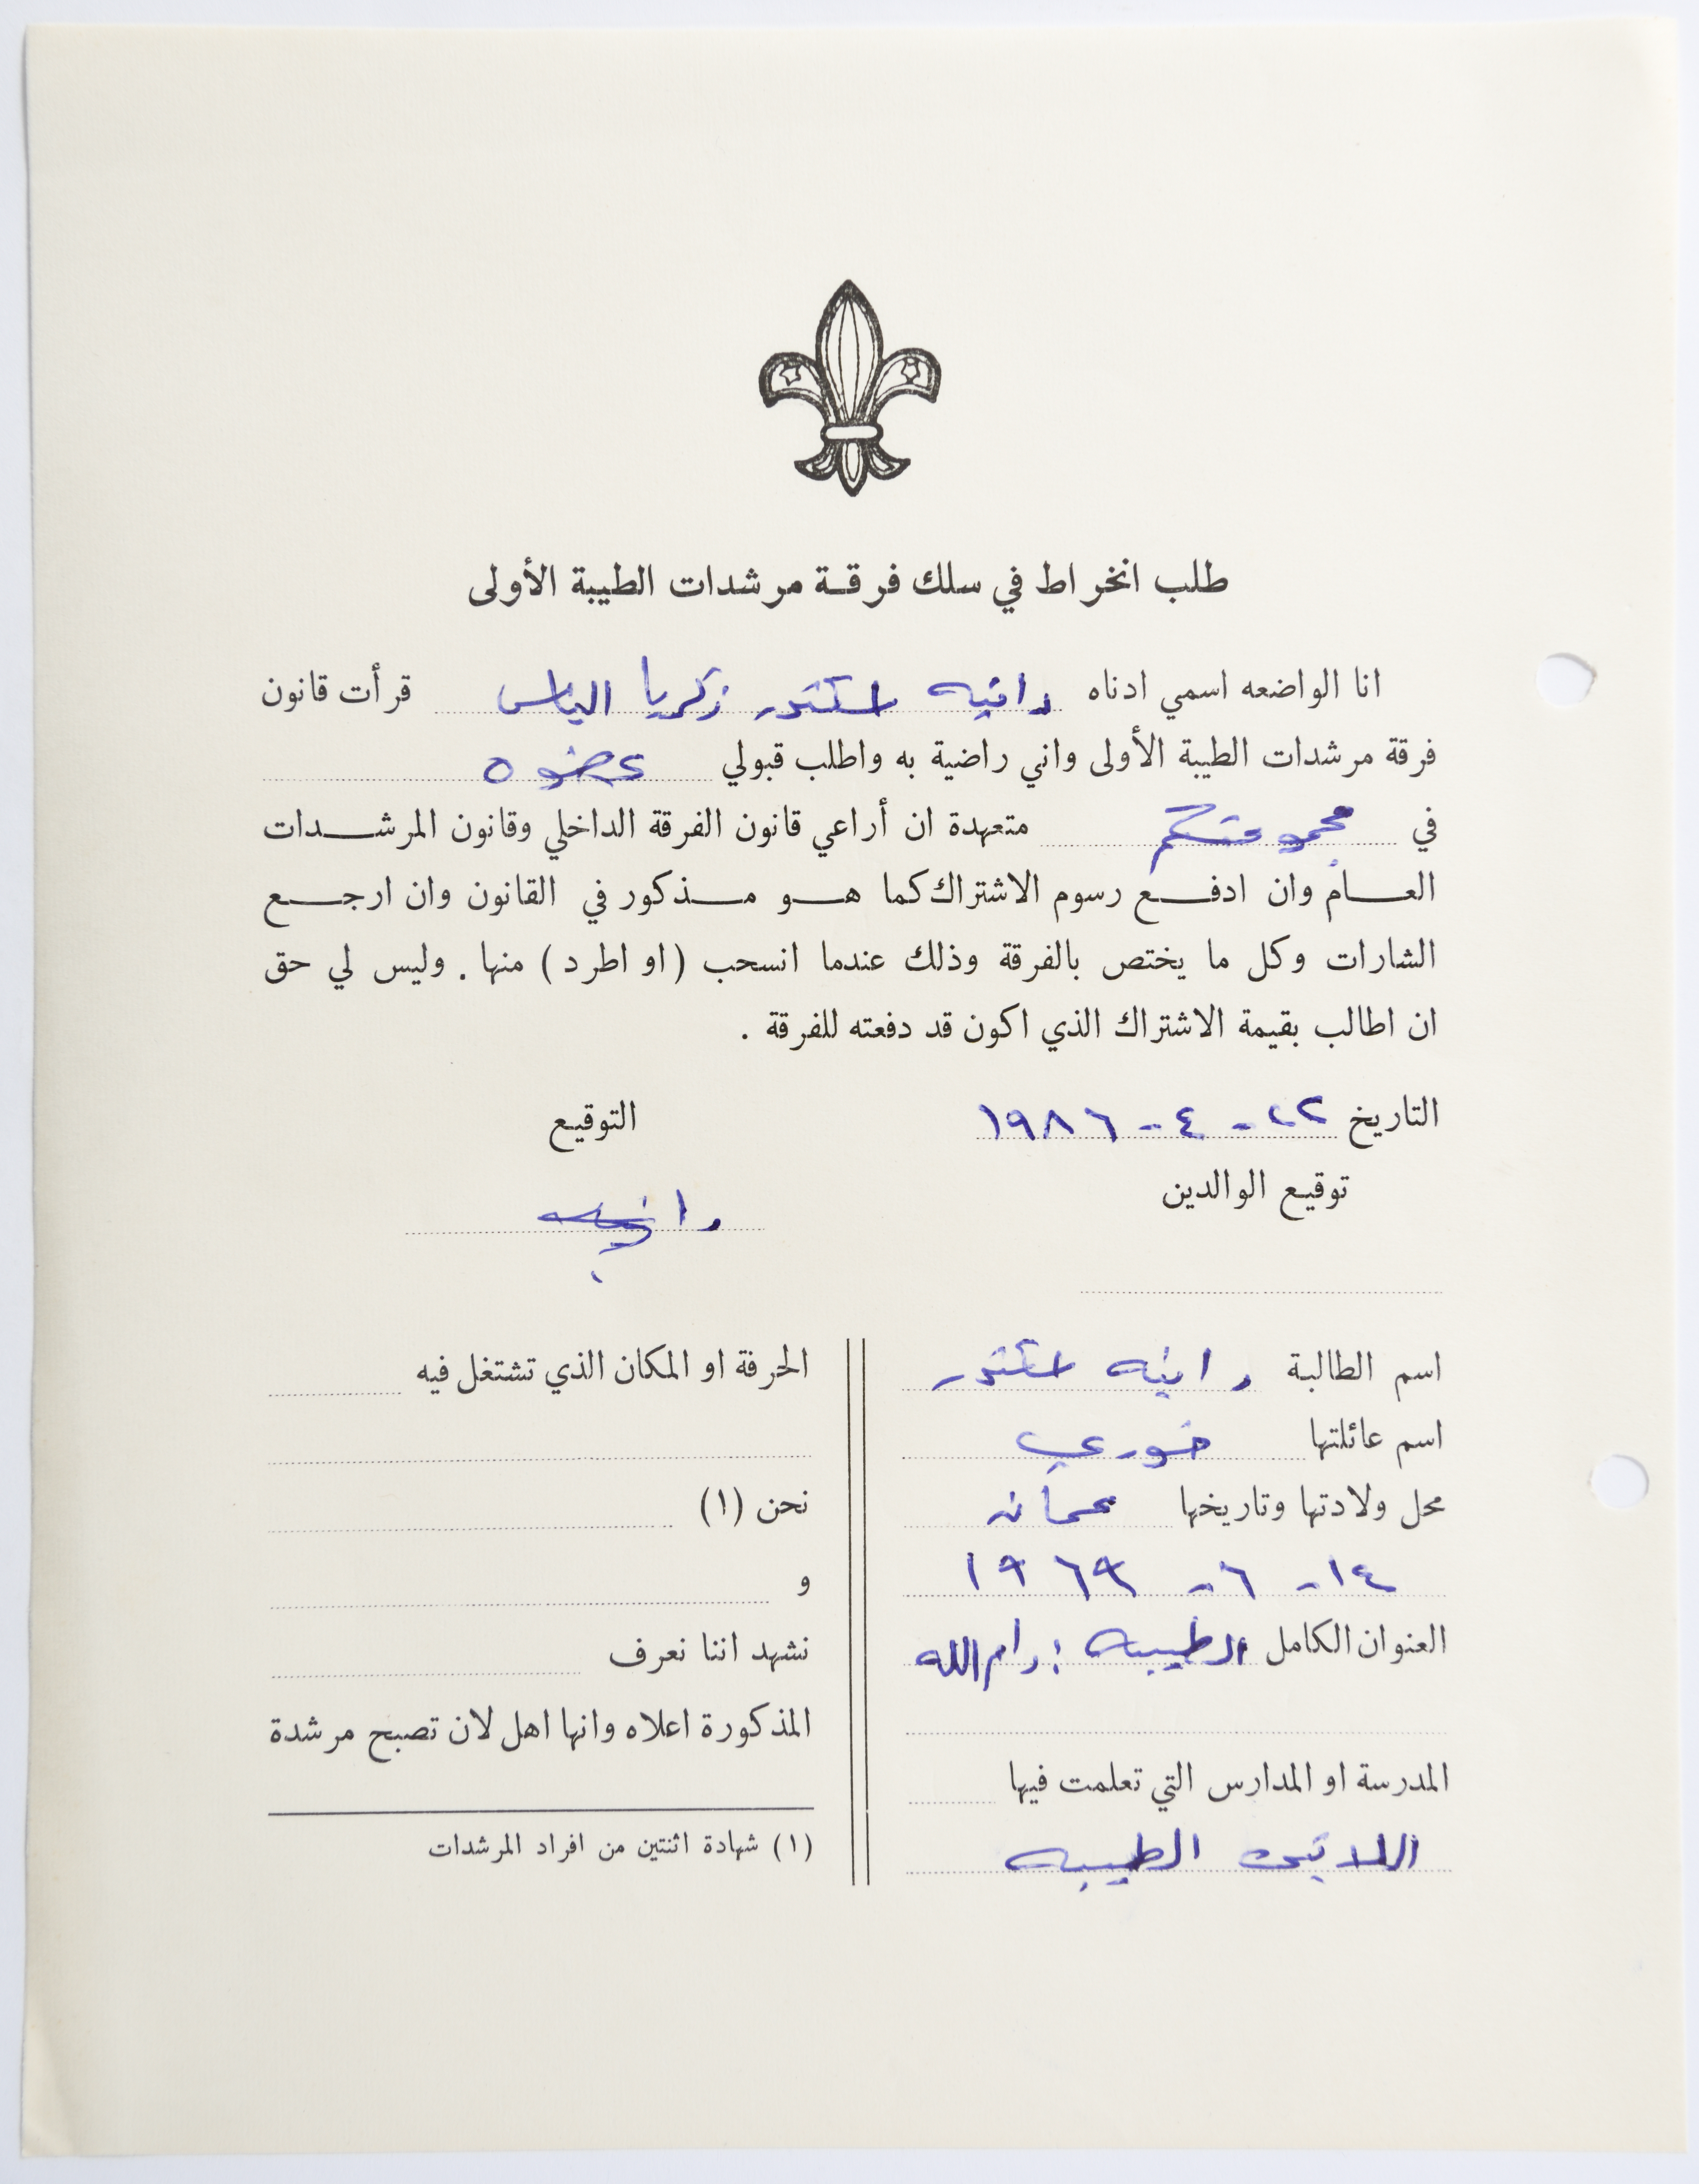 طلب انخراط في سلك فرقة مرشدات الطيبة الأولى
انا الواضعه اسمي ادناه رانيه اسكندر زكريا الياس قرأت قانون
فرقة مرشدات الطيبة الأولى واني راضية به واطلب قبولي عضوه
في مجموعتكم متعهدة ان أراعي قانون الفرقة الداخلي وقانون المرشدات
العام وان ادفع رسوم الاشتراك كما هو مذكور في القانون وان ارجع
الشارات وكل ما يختص بالفرقة وذلك عندما انسحب (او اطرد) منها . وليس لي حق
ان اطالب بقيمة الاشتراك الذي اكون قد دفعته للفرقة .
التاريخ ٢٢ - ٤ - ١٩٨٦
التوقيع
توقيع الوالدين
رانيه
اسم الطالبة رانيه اسكندر
اسم عائلتها خوري
محل ولادتها وتاريخها عمان
١٤ - ٦ - ١٩٦٩
العنوان الكامل الطيبه : رام الله
المدرسة او المدارس التي تعلمت فيها
اللاتين الطيبه
الحرفة او المكان الذي تشتغل فيه
نحن (١)
و
نشهد اننا نعرف
المذكورة اعلاه وانها اهل لان تصبح مرشدة
(١) شهادة اثنتين من افراد المرشدات